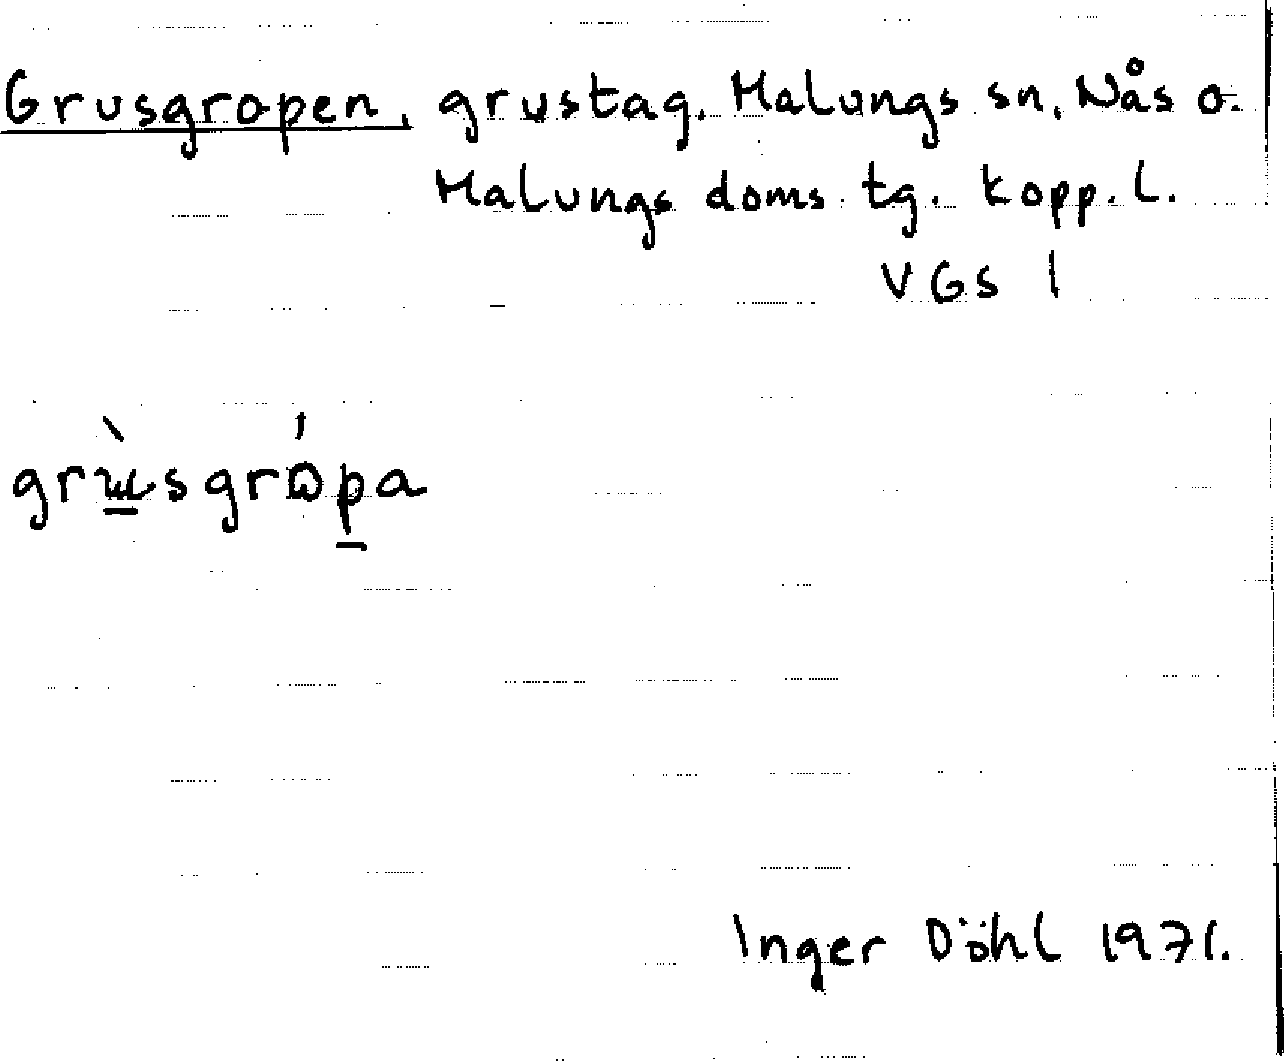 Grusgropen, grustag. Malungs sn, Nås o.
Malungs doms. tg. Kopp. l.
VGS 1
grùsgrópa
Inger Döhl 1971.